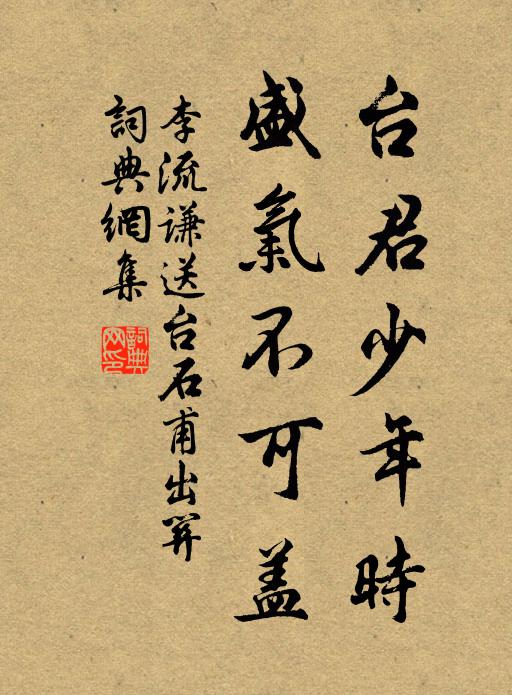 台君少年時
盛氣不可蓋
李流谦送台石甫出関
詞典網集
詞典網印